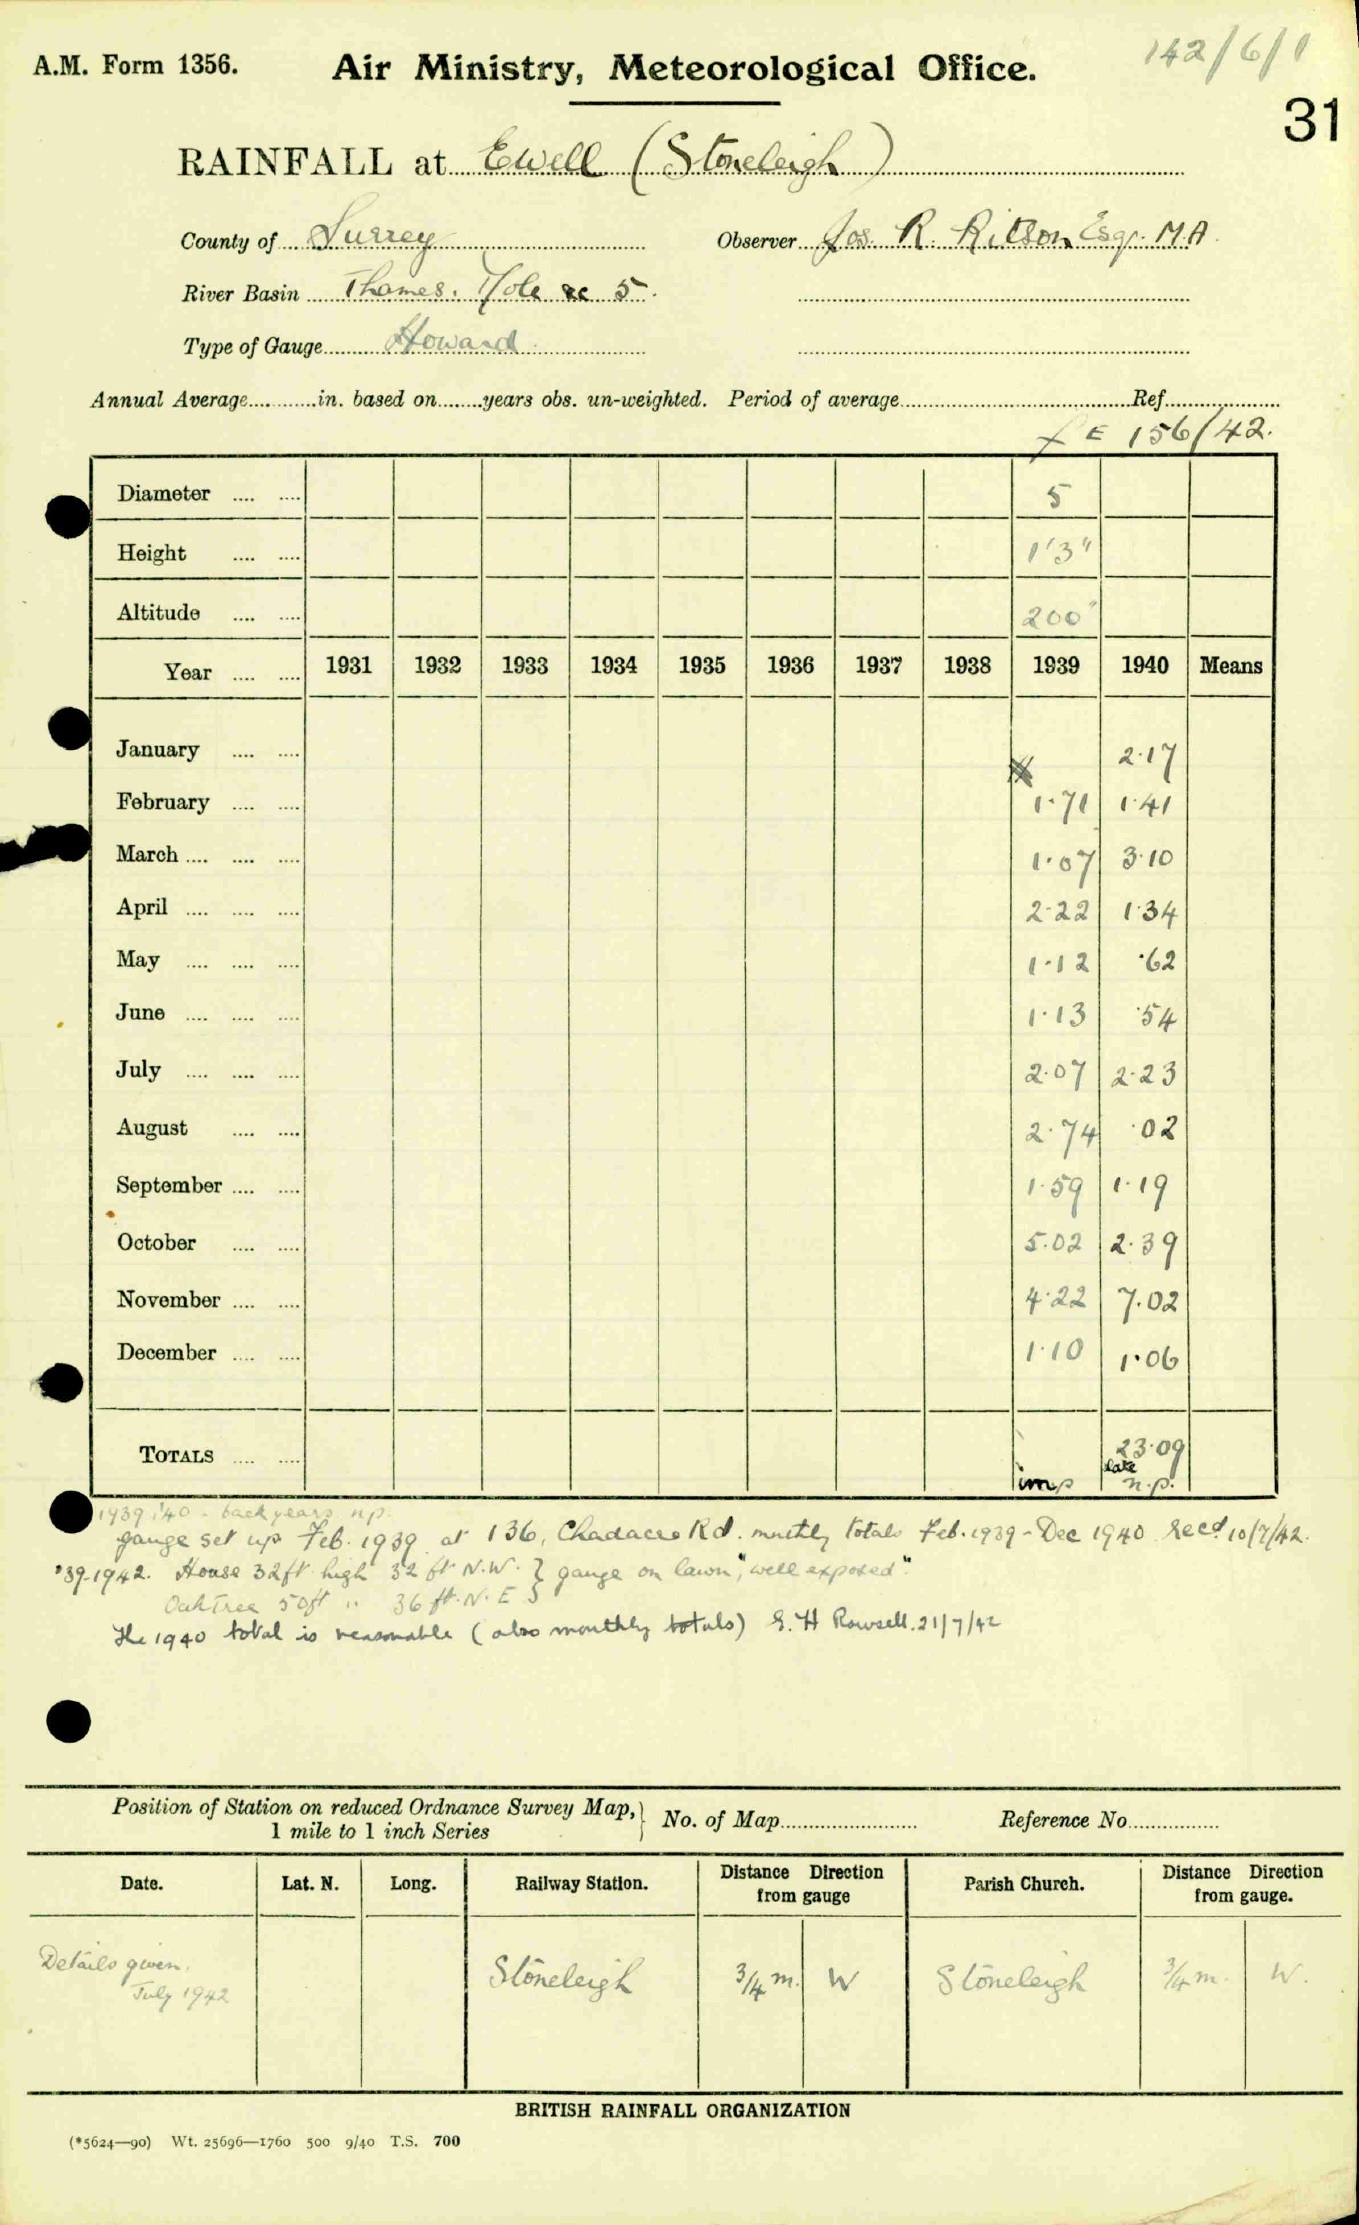 142/6/1
A.M. Form 1356.
Air Ministry, Meteorological Office.
31
RAINFALL at Ewell (Stoneleigh)
County of Surrey Observer Jos. R. Ritson Esqr. M.A.
River Basin Thames. Mole &c 5.
Type of Gauge Howard
Annual Average............in. based on........years obs. un-weighted. Period of average........Ref........
E 156/42.
Diameter .... .... 5
Height .... .... 1'3"
Altitude .... .... 200'
Year .... .... 1931 1932 1933 1934 1935 1936 1937 1938 1939 1940 Means
January .... .... 2.17
February .... .... 1.71 1.41
March .... .... .... 1.07 3.10
April .... .... .... 2.22 1.34
May .... .... .... 1.12 .62
June .... .... .... 1.13 .54
July .... .... .... 2.07 2.23
August .... .... 2.74 .02
September .... .... 1.59 1.19
October .... .... 5.02 2.39
November .... .... 4.22 7.02
December .... .... 1.10 1.06
TOTALS .... .... 23.09
imp late n.p.
1939, '40 - back years n.p.
Gauge set up Feb. 1939 at 136, Chadacre Rd. monthly totals Feb. 1939 - Dec 1940 recd 10/7/42.
'39-1942. House 32ft high 32 ft N.W. } gauge on lawn, "well exposed".
Oak Tree 50ft " 36 ft. N.E }
The 1940 total is reasonable (also monthly totals) G. H Rowsell. 21/7/42
Position of Station on reduced Ordnance Survey Map,} No. of Map........ Reference No........
1 mile to 1 inch Series
Date. Lat. N. Long. Railway Station. Distance Direction from gauge Parish Church. Distance Direction from gauge.
Details given. Stoneleigh 3/4 m. W Stoneleigh 3/4 m. W.
July 1942
BRITISH RAINFALL ORGANIZATION
(*5624—90) Wt. 25696—1760 500 9/40 T.S. 700